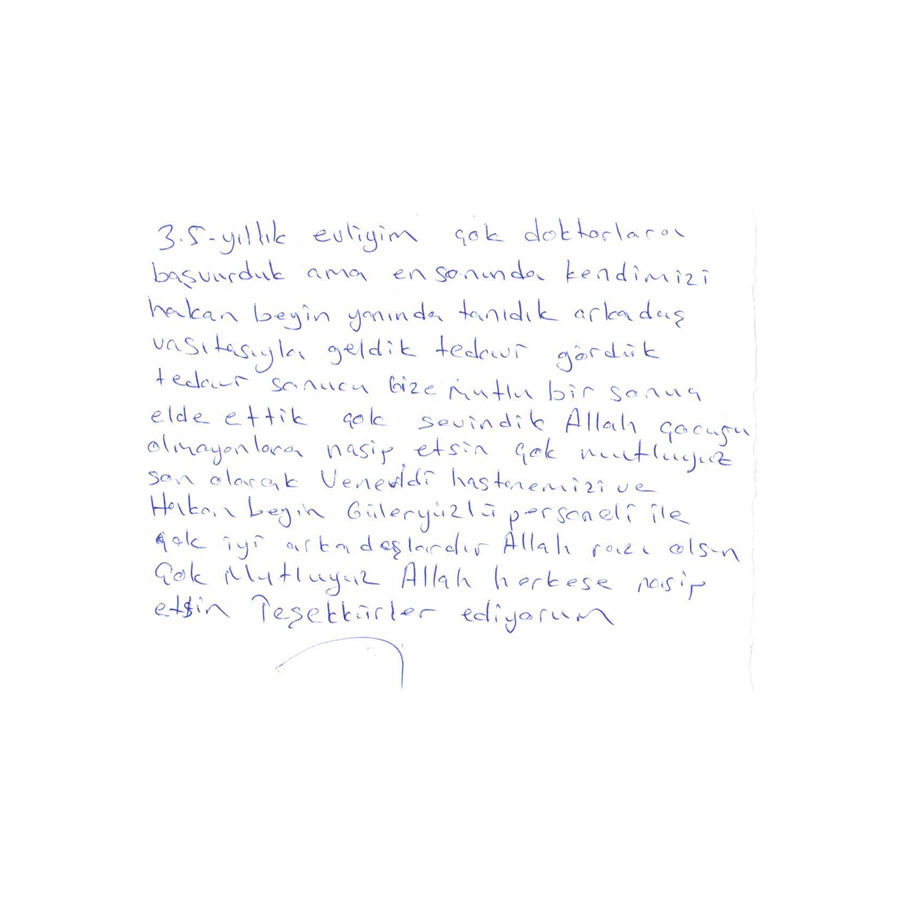 3.5-yıllık evliyim çok doktorlara
başvurduk ama en sonunda kendimizi
hakan beyin yanında tanıdık arkadaş
vasıtasıyla geldik tedavi gördük
tedavi sonucu bize mutlu bir sonuç
elde ettik çok sevindik Allah çocuğu
olmayanlara nasip etsin çok mutluyuz
son olarak hastanemizi ve
Hakan beyin Güleryüzlü personeli ile
çok iyi arkadaşlardır Allah razı olsun
Çok Mutluyuz Allah herkese nasip
etsin Teşekkürler ediyorum